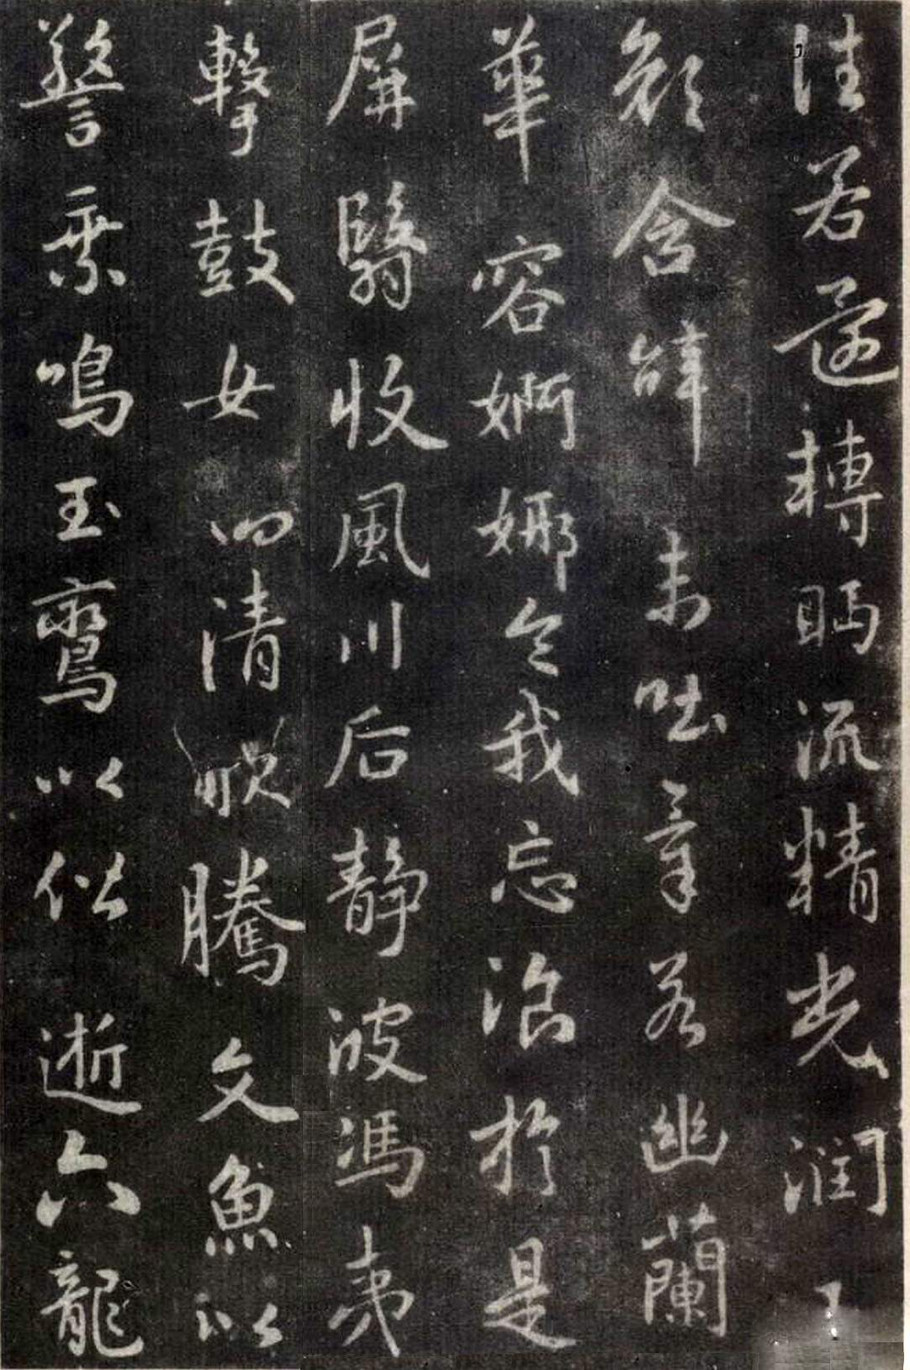 往若還轉眄流精光潤
顏含辭未吐氣若幽蘭
華容婀娜令我忘湌於是
屏翳收風川后靜波馮夷
擊鼓女清騰文魚以
警乘鳴玉鸞以偕逝六龍